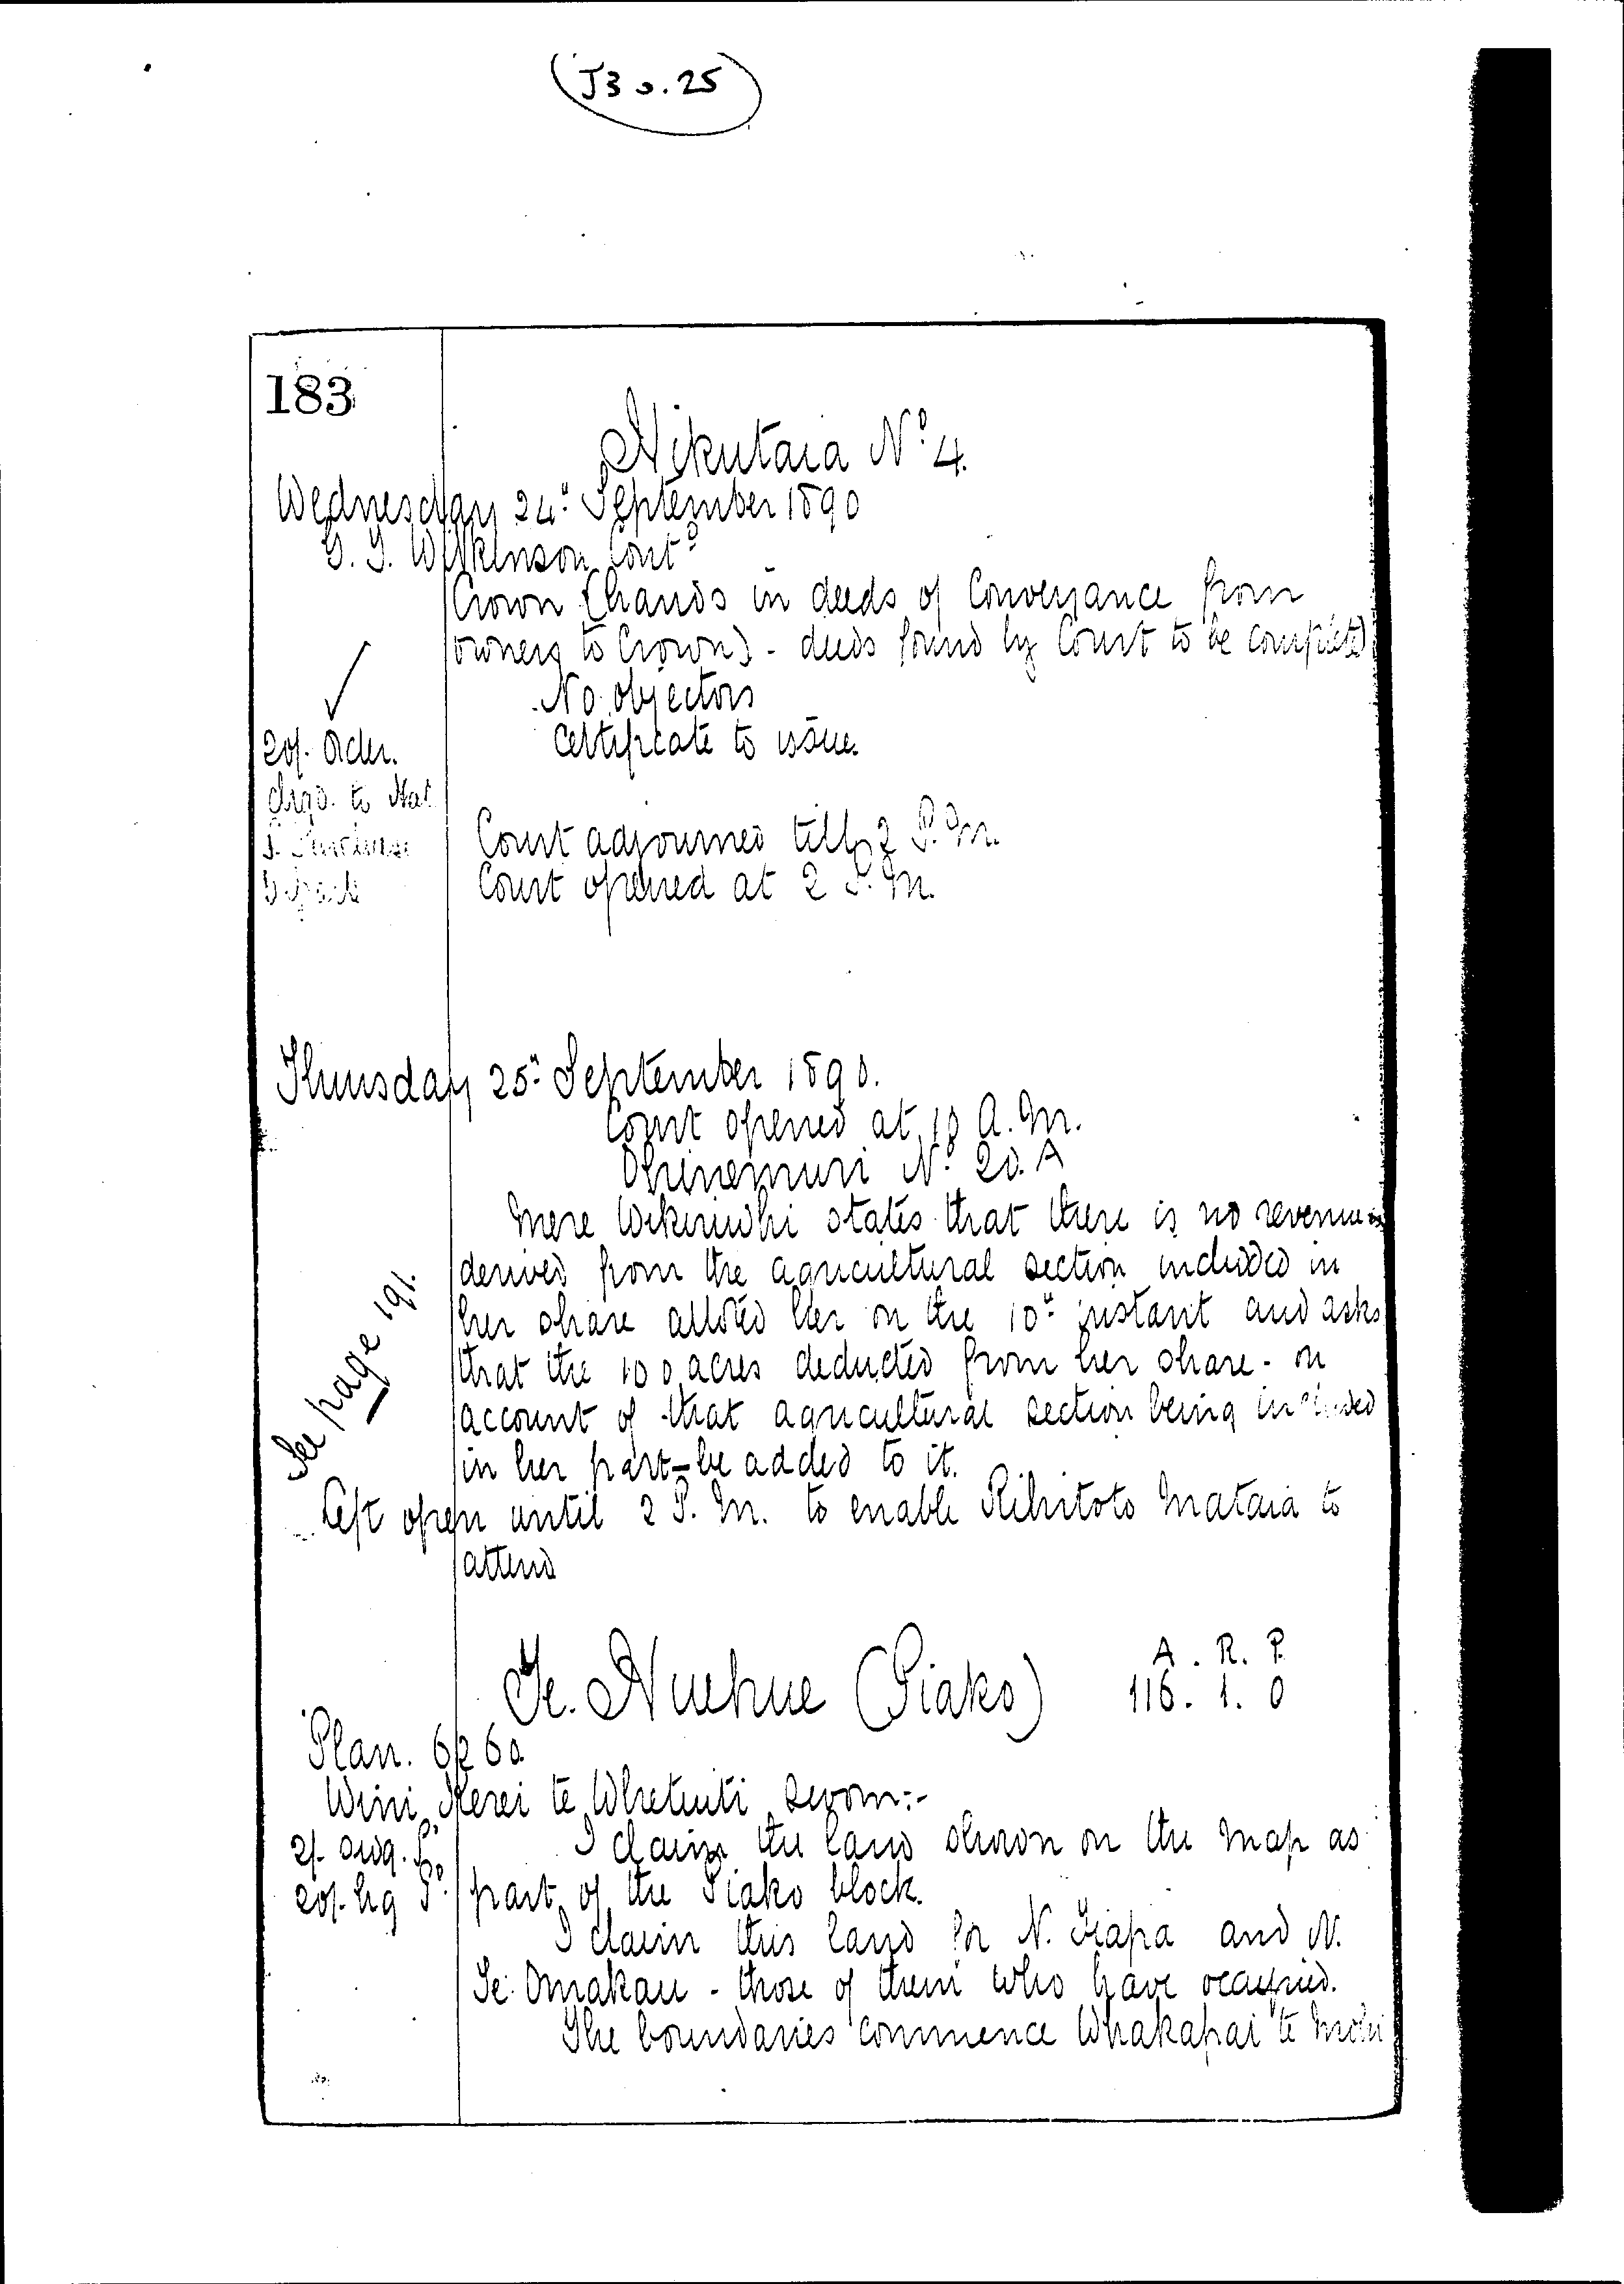 (J3 0.25)
183
Hikutaia No 4.
Wednesday 24" September 1890
G. T. Wilkinson Contd
Crown (hands in deeds of Conveyance from
owners to Crown) - deeds found by Court to be completed
No objectors
Certificate to issue.
20/. Order.
chgd. to Nat
Court adjourned till 2 P.M.
Court opened at 2 P.M.
Thursday 25" September 1890.
Court opened at 10 A.M.
Ohinemuri No 20.A
Mere Wikiriwhi states that there is no revenue
derived from the agricultural section included in
her share alloted her on the 10" instant and asks
that the 100 acres deducted from her share - on
account of that agricultural section being included
in her part - be added to it.
See page 191.
Left open until 2 P.M. to enable Rihitoto Mataia to
attend
A. R. P.
Te. Huehue (Piako) 116. 1. 0
Plan. 6260
Wini Kerei te Whetuiti sworn:-
2/- swg.
I claim the land shown on the map as
20/- hg
part of the Piako block.
I claim this land for N. Tiapa and N.
Te. Omakau - those of them who have occupied.
The boundaries commence Whakapai te